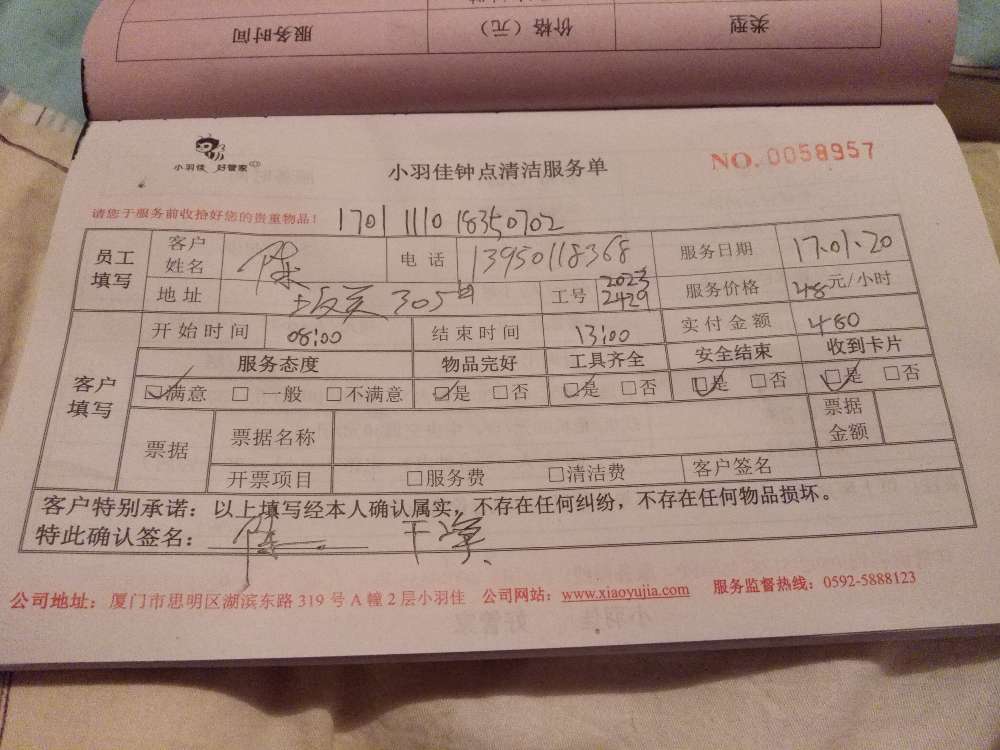 服务时间 价格（元） 类型
小羽佳 好管家
小羽佳钟点清洁服务单
NO.0058957
请您于服务前收拾好您的贵重物品！ 1701 1110 18350702
员工填写 客户姓名 陈 电话 13950118368 服务日期 17.01.20
地址 305 工号 2023 2429 服务价格 48元/小时
客户填写 开始时间 08:00 结束时间 13:00 实付金额 480
服务态度 物品完好 工具齐全 安全结束 收到卡片
☑满意 □一般 □不满意 ☑是 □否 ☑是 □否 ☑是 □否 ☑是 □否
票据 票据名称 票据金额
开票项目 □服务费 □清洁费 客户签名
客户特别承诺：以上填写经本人确认属实，不存在任何纠纷，不存在任何物品损坏。
特此确认签名： 陈 干净
公司地址：厦门市思明区湖滨东路 319 号 A 幢 2 层小羽佳 公司网站：www.xiaoyujia.com 服务监督热线：0592-5888123